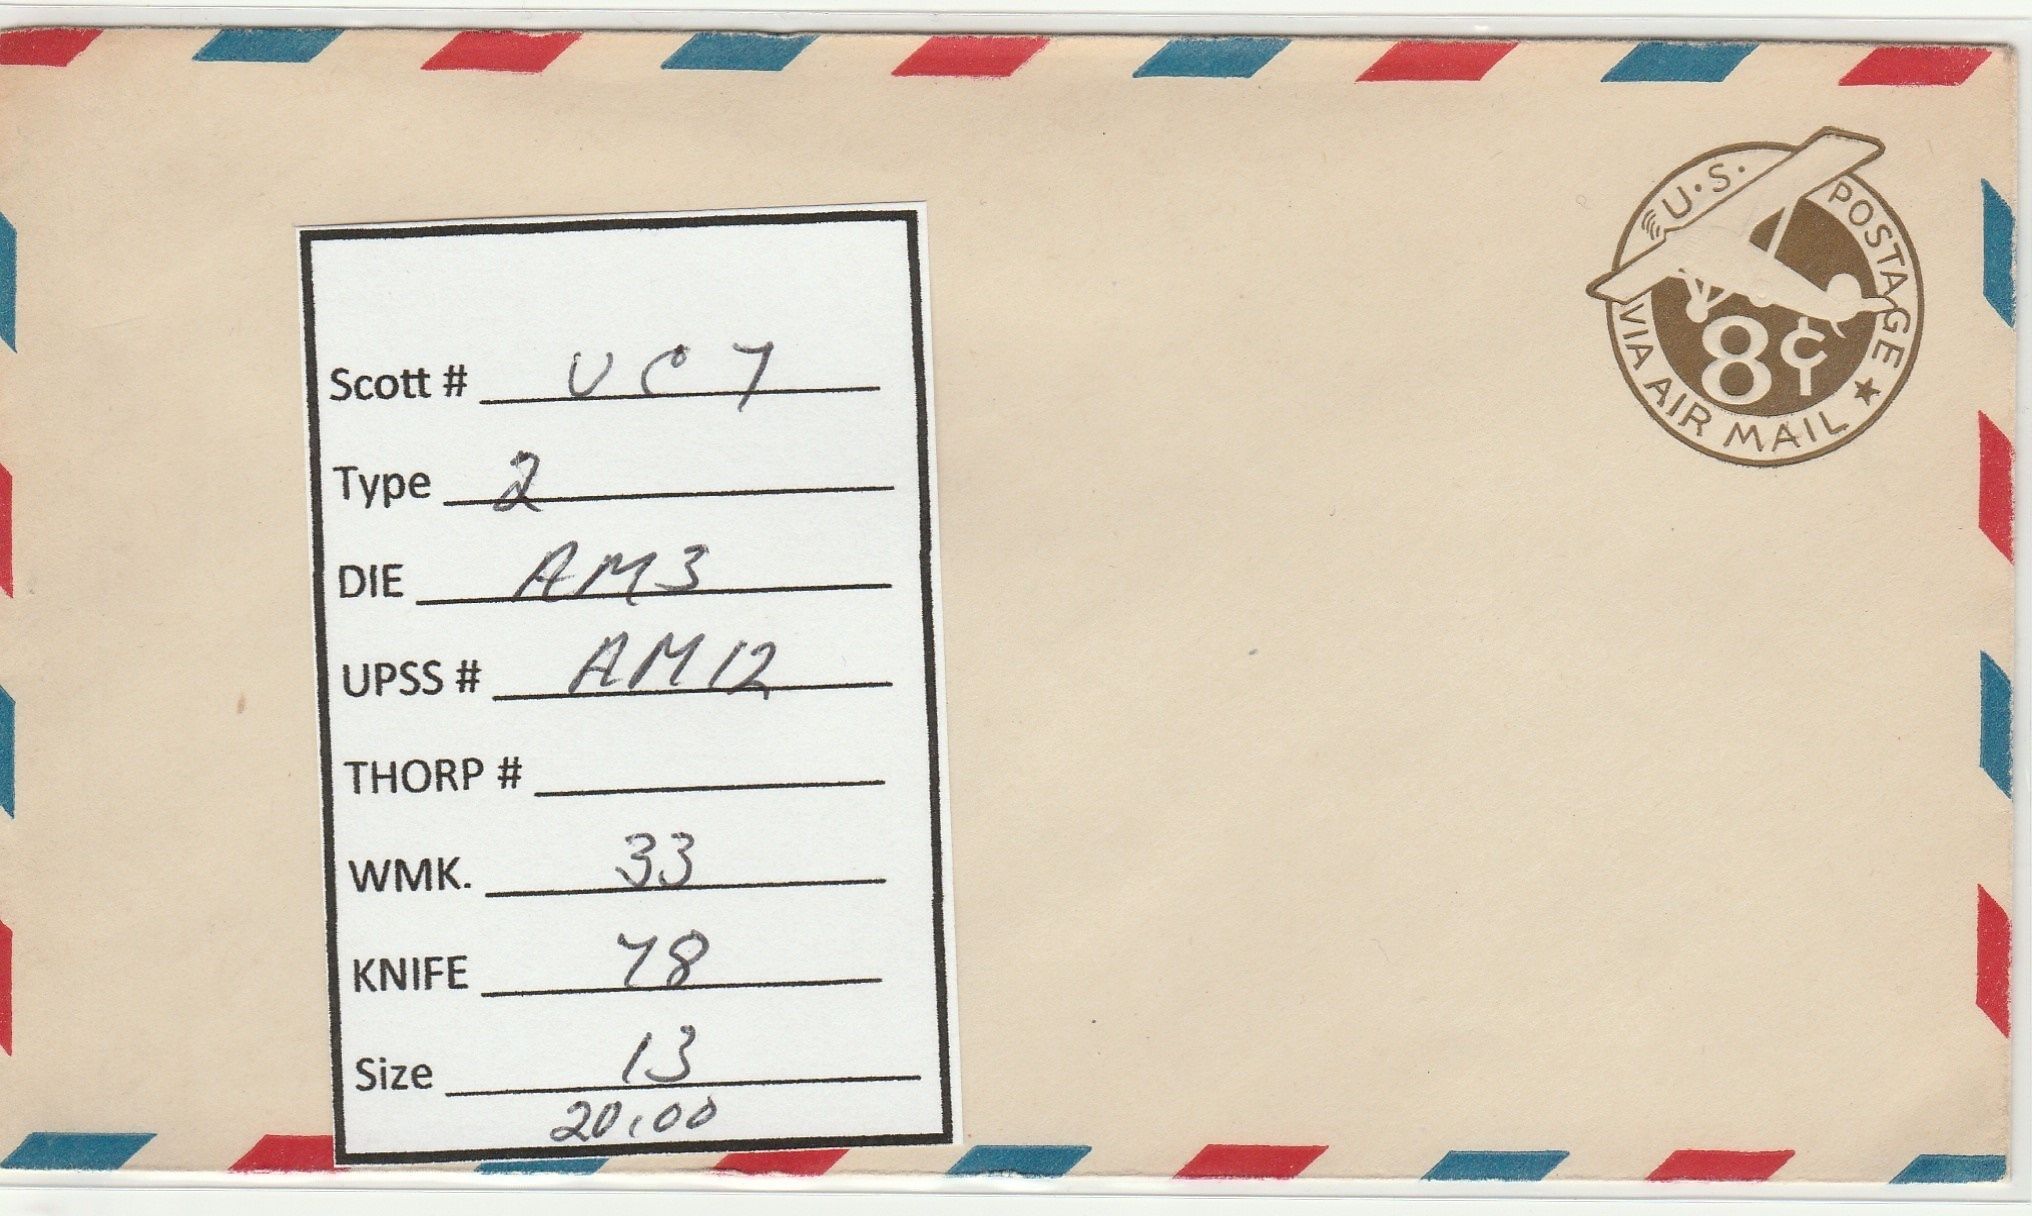 U.S. POSTAGE
8¢
VIA AIR MAIL
Scott # UC7
Type 2
DIE AM3
UPSS # AM12
THORP #
WMK. 33
KNIFE 78
Size 13
20.00